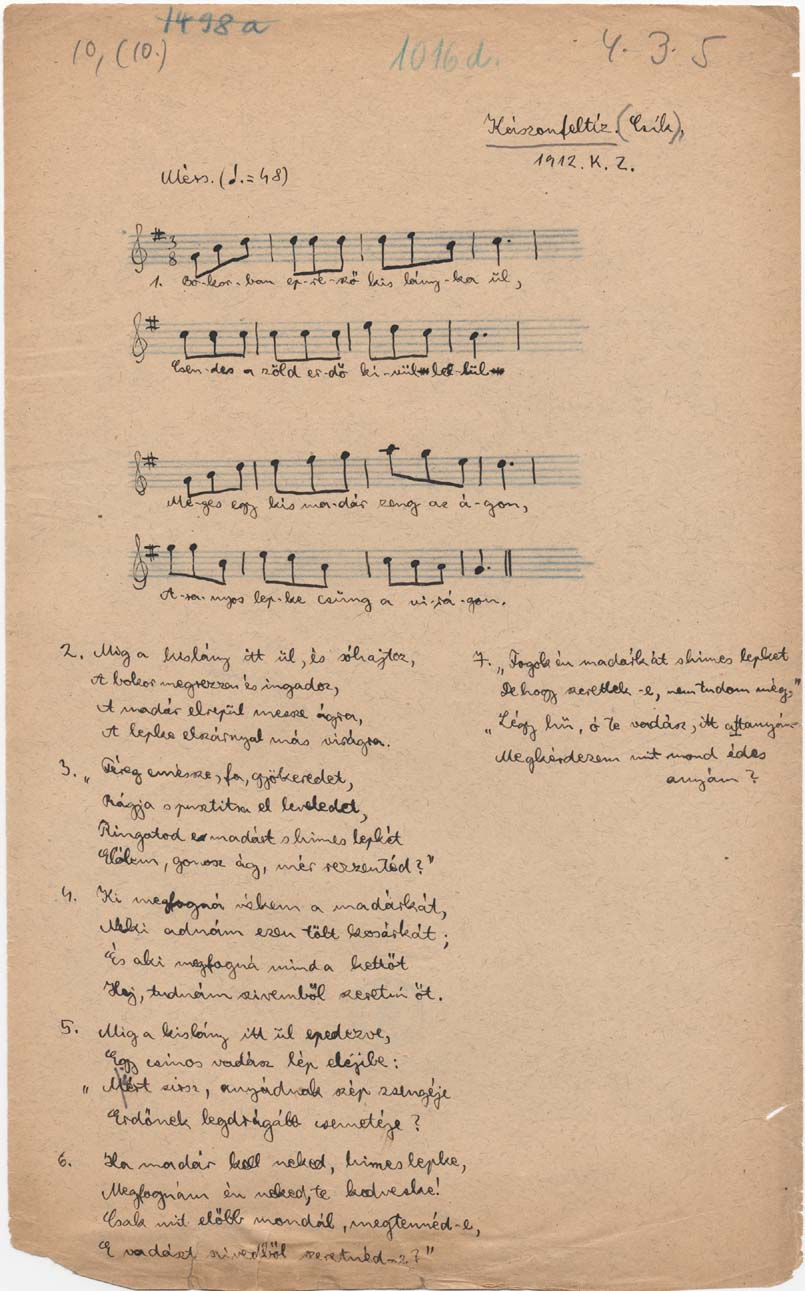 1498a
10, (10.)
1016d.
4. 3. 5
Kászonfeltíz. (Csík),
1912. K. Z.
Mérs. (♩.=48)
3
8
1. Bo-kor-ban ep-re-ző kis lány-ka ül,
Csen-des a zöld er-dő kí-vül-bel-lül
Me-ges egy kis ma-dár zeng az á-gon,
A-ra-nyos lep-ke csüng a vi-rá-gon.
2. Míg a kislány itt ül, és sóhajtoz,
A bokor megrezzen és ingadoz,
A madár elrepül messze ágra,
A lepke elszárnyal más virágra.
3. „Féreg eméssze, fa, gyökeredet,
Rágja s pusztítsa el leveledet,
Ringatod madárt s hímes lepkét
Elölem, gonosz ág, mér rezzentéd?"
4. Ki megfogná nékem a madárkát,
Neki adnám ezen tölt kosárkát;
És aki megfogná mind a kettőt
Hej, tudnám szívemből szeretni őt.
5. Míg a kislány itt ül epedezve,
Egy csinos vadász lép eléjibe:
„Mért sírsz, anyádnak szép zsengéje
Erdőnek legdrágább csemetéje?
6. Ha madár kell neked, hímes lepke,
Megfognám én neked, te kedveske!
Csak mit előbb mondál, megtennéd-e,
E vadászt szivedből szeretnéd-e?"
7. „Fogok én madárkát s hímes lepkét
De hogy szeretlek-e, nem tudom még."
„Légy hű, ó te vadász, itt a tanyán
Megkérdezem mit mond édes
anyám?